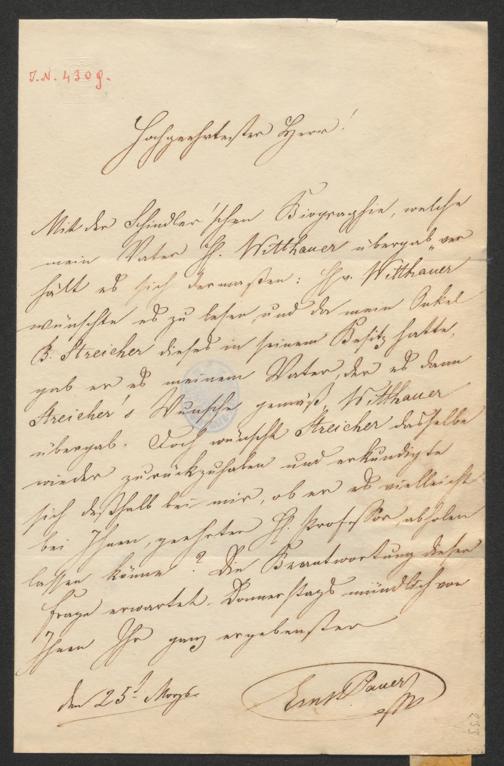 J.N. 4309.
Hochgeehrtester Herr!
Mit der Schindler'schen Biographie, welche
mein Vater H. Witthauer übergab, ver
hält es sich dermaßen: Hr. Witthauer
wünschte es zu lesen, und da mein Onkel
B. Streicher dieses in seinem Besitz hatte,
gab er es meinem Vater, der es dann
Streicher's Wunsche gemäß, Witthauer
übergab. Doch wünscht Streicher dasselbe
wieder zurückzuhaben und erkundigte
sich deßhalb bei mir, ob er es vielleicht
bei Ihnen, geehrter H. Professor, abholen
lassen könne? Die Beantwortung dieser
Frage erwartet Donnerstags mündlich von
Ihnen Ihr ganz ergebenster
den 25t.
Ernst Pauer